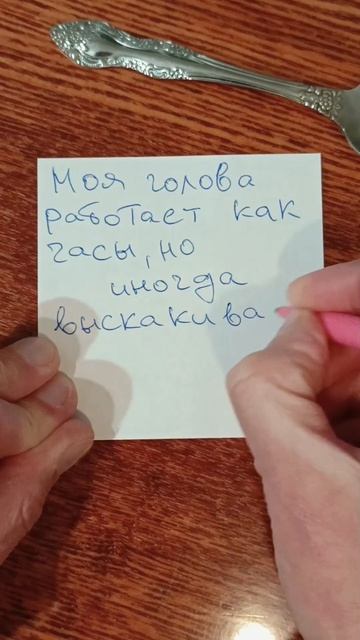 Моя голова
работает как
часы, но
иногда
выскакива